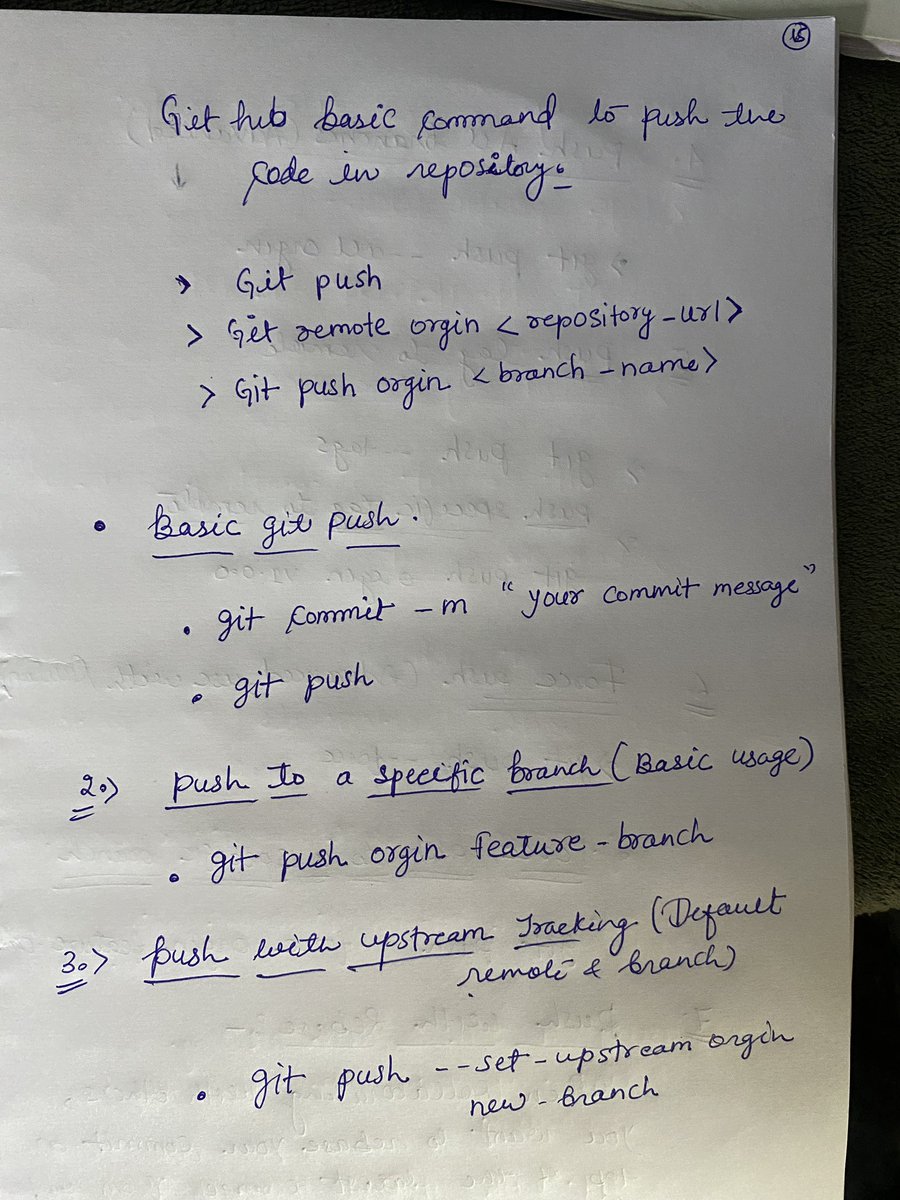 15
Git hub basic command to push the
↓ code in repository:-
> Git push
> Git remote orgin <repository-url>
> Git push orgin <branch-name>
• Basic git push.
• git commit -m "your commit message"
• git push
2.> push to a specific branch (Basic usage)
• git push orgin feature-branch
3.> push with upstream Tracking (Default
remote & branch)
• git push --set-upstream orgin
new-branch